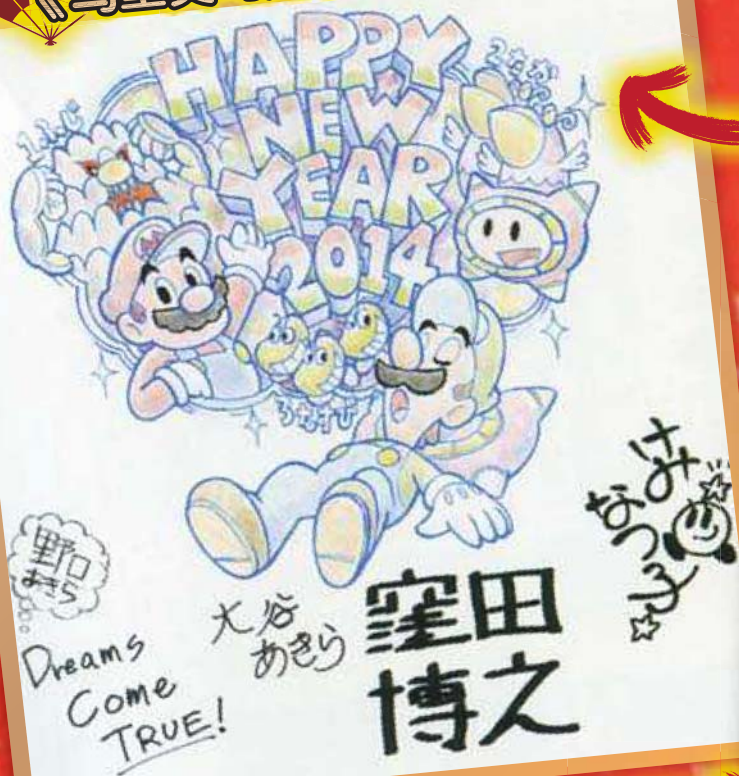 HAPPY
NEW
YEAR
2014
1ふじ
2たか
3なすび
野口
あきら
Dreams
Come
TRUE!
大谷
あきら
窪田
博之
けみ
なつ子